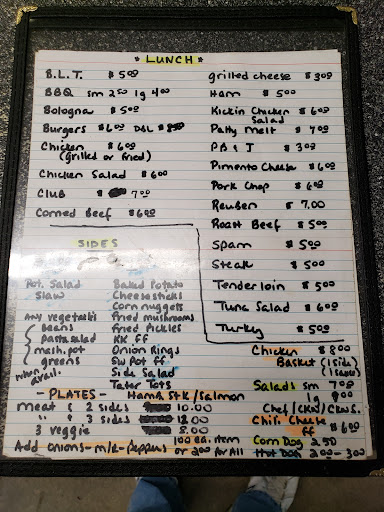 * LUNCH *
B.L.T. $5.00
BBQ sm 2.50 lg 4.00
Bologna $5.00
Burgers $6.00 DBL
Chicken $6.00
(grilled or fried)
Chicken Salad $6.00
Club $ 7.00
Corned Beef $6.00
grilled cheese $3.00
Ham $5.00
Kickin Chicken $6.00
Salad
Patty melt $7.00
P B & J $3.00
Pimento Cheese $6.00
Pork Chop $6.00
Reuben $7.00
Roast Beef $5.00
Spam $5.00
Steak $5.00
Tenderloin $5.00
Tuna Salad $6.00
Turkey $5.00
SIDES
Pot. Salad
Slaw
Any vegetable
beans
pasta salad
mash. pot
greens
when avail.
Baked Potato
Cheesesticks
Corn nuggets
Fried mushrooms
Fried Pickles
KK ff
Onion Rings
Sw Pot ff
Side Salad
Tater Tots
Chicken $8.00
Basket (1 side)
Salads sm 7.00
lg
Chef/CKN/
Chili Cheese $6.00
ff
Corn Dog 2.50
Hot Dog 2.00 - 3.00
- PLATES - Hamb Stk/Salmon
meat & 2 sides 10.00
" & 3 sides 12.00
3 veggie 8.00
Add onions - m/r - peppers 1.00 ea. item
or 2.00 for All